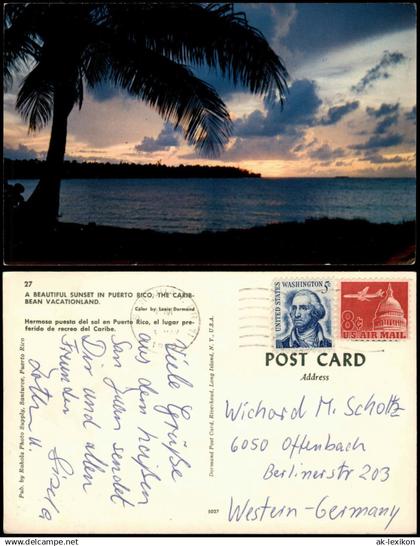 27
A BEAUTIFUL SUNSET IN PUERTO RICO, THE CARIB-
BEAN VACATIONLAND.
Color by Louis Dormand
Hermosa puesta del sol en Puerto Rico, el lugar pre-
ferido de recreo del Caribe.
Pub. by Rahola Photo Supply, Santurce, Puerto Rico
Viele Grüße
aus dem heißen
San Juan sendet
Dir und allen
Freunden
Lothar u. Gisela
Dormand Post Card, Riverhead, Long Island, N. Y., U.S.A.
5027
UNITED STATES
WASHINGTON 5c
8c
US AIR MAIL
POST CARD
Address
Wichard M. Scholtz
6050 Offenbach
Berlinerstr 203
Western-Germany
ak-lexikon.de